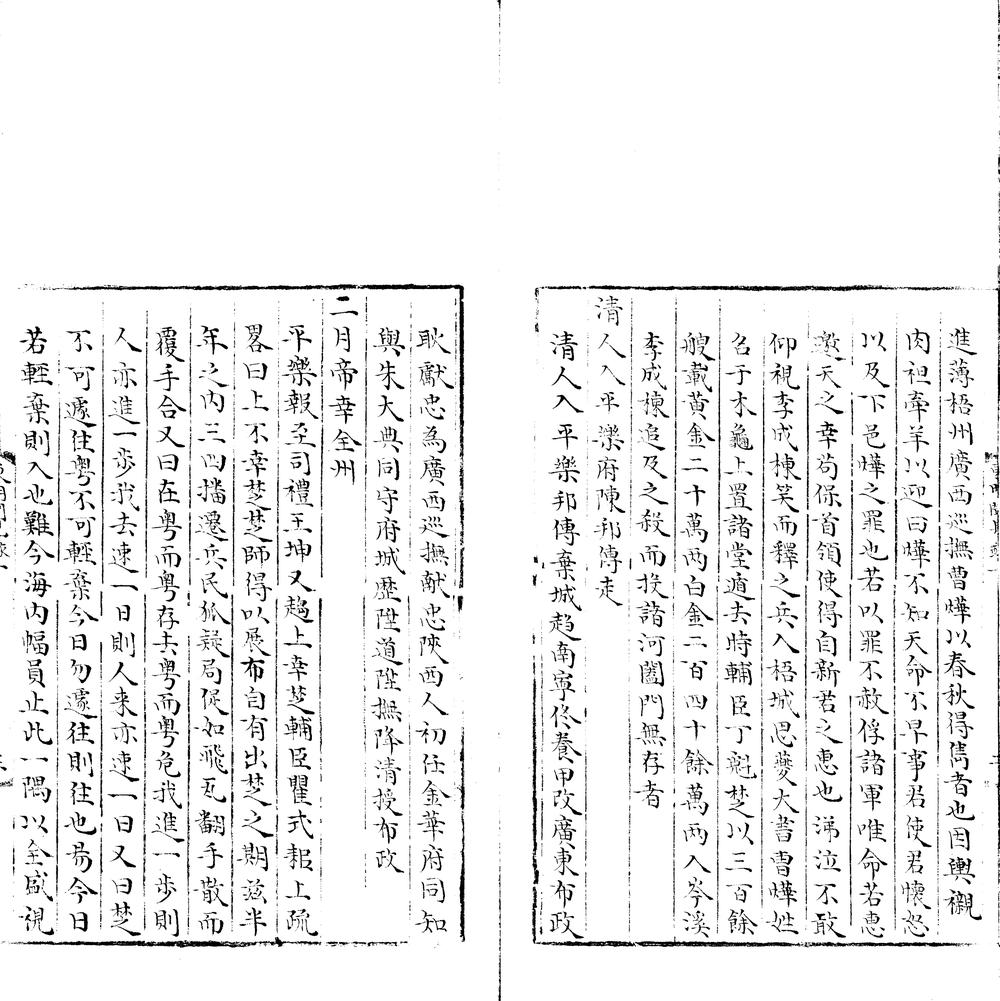 進薄梧州廣西巡撫曹燁以春秋得雋者也因輿櫬
肉袒牽羊以迎曰燁不知天命不早事君使君懷怒
以及下邑燁之罪也若以罪不赦俘諸軍唯命若惠
邀天之幸苟保首領使得自新君之惠也涕泣不敢
仰視李成棟笑而釋之兵入梧城思夔大書曹燁姓
名于木龜上置諸堂遁去時輔臣丁魁楚以三百餘
艘載黃金二十萬兩白金二百四十餘萬兩入岑溪
李成棟追及之殺而投諸河闔門無存者
清人入平樂府陳邦傳走
清人入平樂邦傳棄城趨南寧佟養甲改廣東布政
耿獻忠為廣西巡撫献忠陝西人初任金華府同知
與朱大典同守府城歷陞道陞撫降清授布政
二月帝幸全州
平樂報至司禮王坤又趨上幸楚輔臣瞿式耜上疏
畧曰上不幸楚楚師得以展布自有出楚之期兹半
年之內三四播遷兵民狐疑局促如飛瓦翻手散而
覆手合又曰在粤而粤存去粤而粤危我進一步則
人亦進一步我去速一日則人来亦速一日又曰楚
不可遽往粤不可輕棄今日勿遽往則往也易今日
若輕棄則入也難今海內幅員止此一隅以全盛視